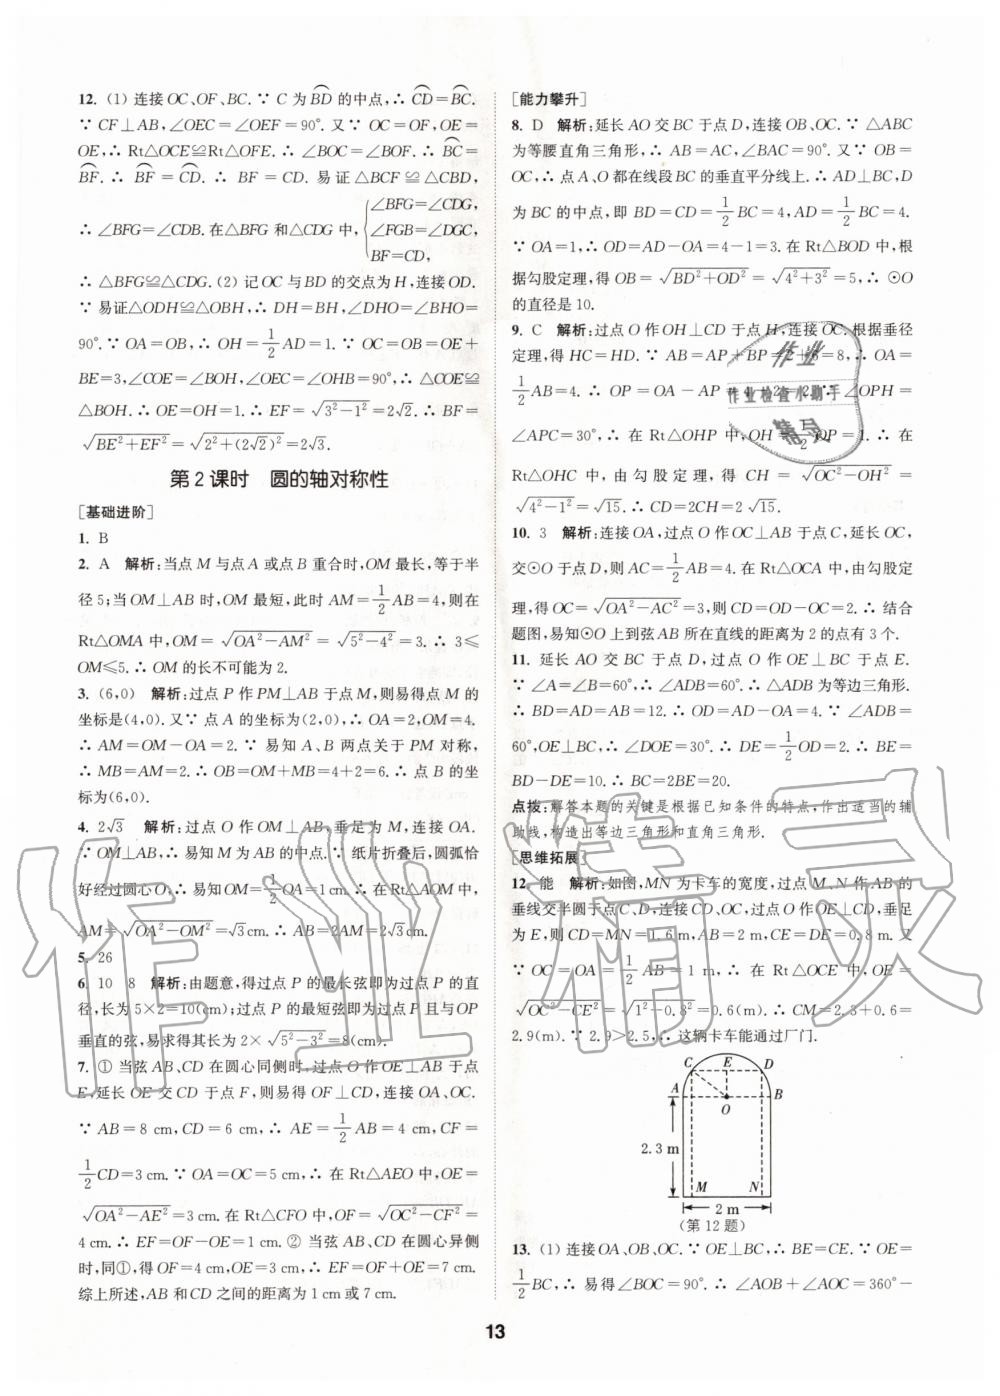 12. (1) 连接OC、OF、BC. ∵ C为BD⌒的中点,∴ CD⌒=BC⌒.
∵ CF⊥AB,∠OEC=∠OEF=90°. 又∵ OC=OF,OE=
OE,∴ Rt△OCE≌Rt△OFE. ∴ ∠BOC=∠BOF. ∴ BC⌒=
BF⌒. ∴ BF⌒=CD⌒. ∴ BF=CD. 易证△BCF≌△CBD,
∴ ∠BFG=∠CDB. 在△BFG和△CDG中,{∠BFG=∠CDG,
∠FGB=∠DGC,
BF=CD,
∴ △BFG≌△CDG. (2) 记OC与BD的交点为H,连接OD.
∵ 易证△ODH≌△OBH,∴ DH=BH,∠DHO=∠BHO=
90°. ∵ OA=OB,∴ OH=1/2 AD=1. ∵ OC=OB=OE+
BE=3,∠COE=∠BOH,∠OEC=∠OHB=90°,∴ △COE≌
△BOH. ∴ OE=OH=1. ∴ EF=√(3²-1²)=2√2. ∴ BF=
√(BE²+EF²)=√(2²+(2√2)²)=2√3.
第2课时 圆的轴对称性
[基础进阶]
1. B
2. A 解析:当点M与点A或点B重合时,OM最长,等于半
径5;当OM⊥AB时,OM最短,此时AM=1/2 AB=4,则在
Rt△OMA中,OM=√(OA²-AM²)=√(5²-4²)=3. ∴ 3≤
OM≤5. ∴ OM的长不可能为2.
3. (6,0) 解析:过点P作PM⊥AB于点M,则易得点M的
坐标是(4,0). 又∵ 点A的坐标为(2,0),∴ OA=2,OM=4.
∴ AM=OM-OA=2. ∵ 易知A、B两点关于PM对称,
∴ MB=AM=2. ∴ OB=OM+MB=4+2=6. ∴ 点B的坐
标为(6,0).
4. 2√3 解析:过点O作OM⊥AB,垂足为M,连接OA.
∵ OM⊥AB,∴ 易知M为AB的中点. ∵ 纸片折叠后,圆弧恰
好经过圆心O,∴ 易知OM=1/2 OA=1 cm. ∴ 在Rt△AOM中,
AM=√(OA²-OM²)=√3 cm. ∴ AB=2AM=2√3 cm.
5. 26
6. 10 8 解析:由题意,得过点P的最长弦即为过点P的直
径,长为5×2=10(cm);过点P的最短弦即为过点P且与OP
垂直的弦,易求得其长为2×√(5²-3²)=8(cm).
7. ① 当弦AB、CD在圆心同侧时,过点O作OE⊥AB于点
E,延长OE交CD于点F,则易得OF⊥CD,连接OA、OC.
∵ AB=8 cm,CD=6 cm,∴ AE=1/2 AB=4 cm,CF=
1/2 CD=3 cm. ∵ OA=OC=5 cm,∴ 在Rt△AEO中,OE=
√(OA²-AE²)=3 cm. 在Rt△CFO中,OF=√(OC²-CF²)=
4 cm. ∴ EF=OF-OE=1 cm. ② 当弦AB、CD在圆心异侧
时,同①,得OF=4 cm,OE=3 cm,∴ EF=OF+OE=7 cm.
综上所述,AB和CD之间的距离为1 cm或7 cm.
[能力攀升]
8. D 解析:延长AO交BC于点D,连接OB、OC. ∵ △ABC
为等腰直角三角形,∴ AB=AC,∠BAC=90°. 又∵ OB=
OC,∴ 点A、O都在线段BC的垂直平分线上. ∴ AD⊥BC,D
为BC的中点,即BD=CD=1/2 BC=4,AD=1/2 BC=4.
∵ OA=1,∴ OD=AD-OA=4-1=3. 在Rt△BOD中,根
据勾股定理,得OB=√(BD²+OD²)=√(4²+3²)=5,∴ ⊙O
的直径是10.
9. C 解析:过点O作OH⊥CD于点H,连接OC. 根据垂径
定理,得HC=HD. ∵ AB=AP+BP=2+6=8,∴ OA=
1/2 AB=4. ∴ OP=OA-AP=4-2=2. ∵ ∠OPH=
∠APC=30°,∴ 在Rt△OHP中,OH=1/2 OP=1. ∴ 在
Rt△OHC中,由勾股定理,得CH=√(OC²-OH²)=
√(4²-1²)=√15. ∴ CD=2CH=2√15.
10. 3 解析:连接OA,过点O作OC⊥AB于点C,延长OC
交⊙O于点D,则AC=1/2 AB=4. 在Rt△OCA中,由勾股定
理,得OC=√(OA²-AC²)=3,则CD=OD-OC=2. ∴ 结合
题图,易知⊙O上到弦AB所在直线的距离为2的点有3个.
11. 延长AO交BC于点D,过点O作OE⊥BC于点E.
∵ ∠A=∠B=60°,∴ ∠ADB=60°. ∴ △ADB为等边三角形.
∴ BD=AD=AB=12. ∴ OD=AD-OA=4. ∵ ∠ADB=
60°,OE⊥BC,∴ ∠DOE=30°. ∴ DE=1/2 OD=2. ∴ BE=
BD-DE=10. ∴ BC=2BE=20.
点拨:解答本题的关键是根据已知条件的特点,作出适当的辅
助线,构造出等边三角形和直角三角形.
[思维拓展]
12. 能 解析:如图,MN为卡车的宽度,过点M、N作AB的
垂线交半圆于点C、D,连接CD,过点O作OE⊥CD,垂足
为E,则CD=MN=1.6 m,AB=2 m,CE=DE=0.8 m. 又
∵ OC=OA=1/2 AB=1 m,∴ 在Rt△OCE中,OE=
√(OC²-CE²)=√(1²-0.8²)=0.6(m). ∴ CM=2.3+0.6=
2.9(m). ∵ 2.9>2.5,∴ 这辆卡车能通过厂门.
C E D
A O B
2.3 m
M N
2 m
(第12题)
13. (1) 连接OA、OB、OC. ∵ OE⊥BC,∴ BE=CE. ∵ OE=
1/2 BC,∴ 易得∠BOC=90°. ∴ ∠AOB+∠AOC=360°-
13
作业
作业检查小助手
精灵
作业精灵